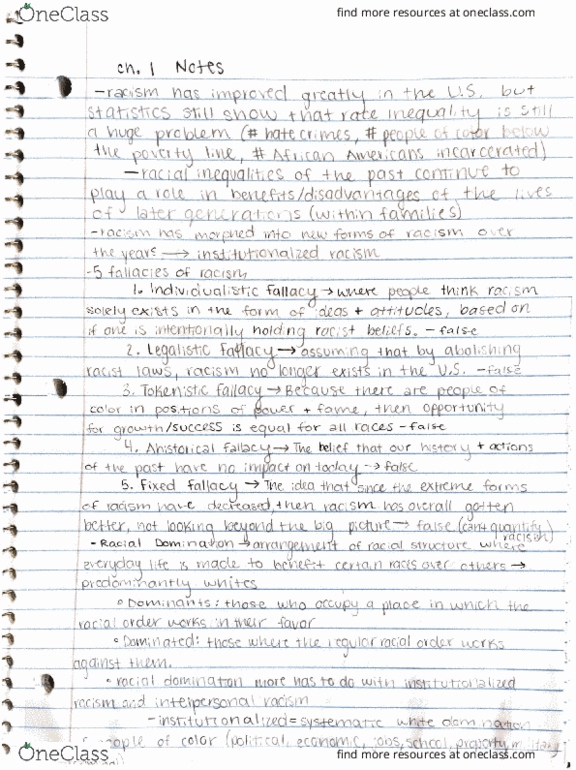 OneClass
find more resources at oneclass.com
ch. 1 Notes
-racism has improved greatly in the U.S. but
statistics still show that rate inequality is still
a huge problem (# hate crimes, # people of color below
the poverty line, # African Americans incarcerated)
-racial inequalities of the past continue to
play a role in benefits/disadvantages of the lives
of later generations (within families)
-racism has morphed into new forms of racism over
the years → institutionalized racism
-5 fallacies of racism
1. Individualistic fallacy → where people think racism
solely exists in the form of ideas + attitudes, based on
if one is intentionally holding racist beliefs. - false
2. Legalistic fallacy → assuming that by abolishing
racist laws, racism no longer exists in the U.S. - false
3. Tokenistic fallacy → Because there are people of
color in positions of power + fame, then opportunity
for growth/success is equal for all races - false
4. Ahistorical fallacy → The belief that our history + actions
of the past have no impact on today → false
5. Fixed fallacy → The idea that since the extreme forms
of racism have decreased, then racism has overall gotten
better, not looking beyond the big picture → false (can't quantify
racism)
- Racial Domination → arrangement of racial structure where
everyday life is made to benefit certain races over others →
predominantly whites
° Dominants: those who occupy a place in which the
racial order works in their favor
° Dominated: those where the regular racial order works
against them.
° racial domination more has to do with institutionalized
racism and interpersonal racism
-institutionalized = systematic white domination
people of color (political, economic, jobs, school, property, military
OneClass
find more resources at oneclass.com